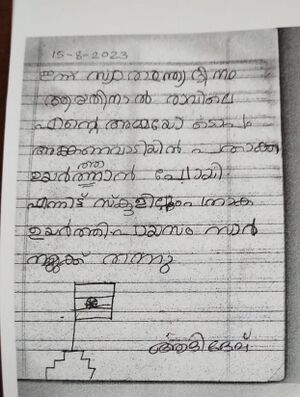 15-8-2023
ഇന്ന് സ്വാതന്ത്ര്യദിനം
ആയതിനാൽ രാവിലെ
എന്റെ അമ്മയോടൊപ്പം
അങ്കണവാടിയിൽ പതാക
ഉയർത്താൻ പോയി
എന്നിട്ട് സ്കൂളിലും പതാക
ഉയർത്തി പായസം സാർ
നമുക്ക് തന്നു